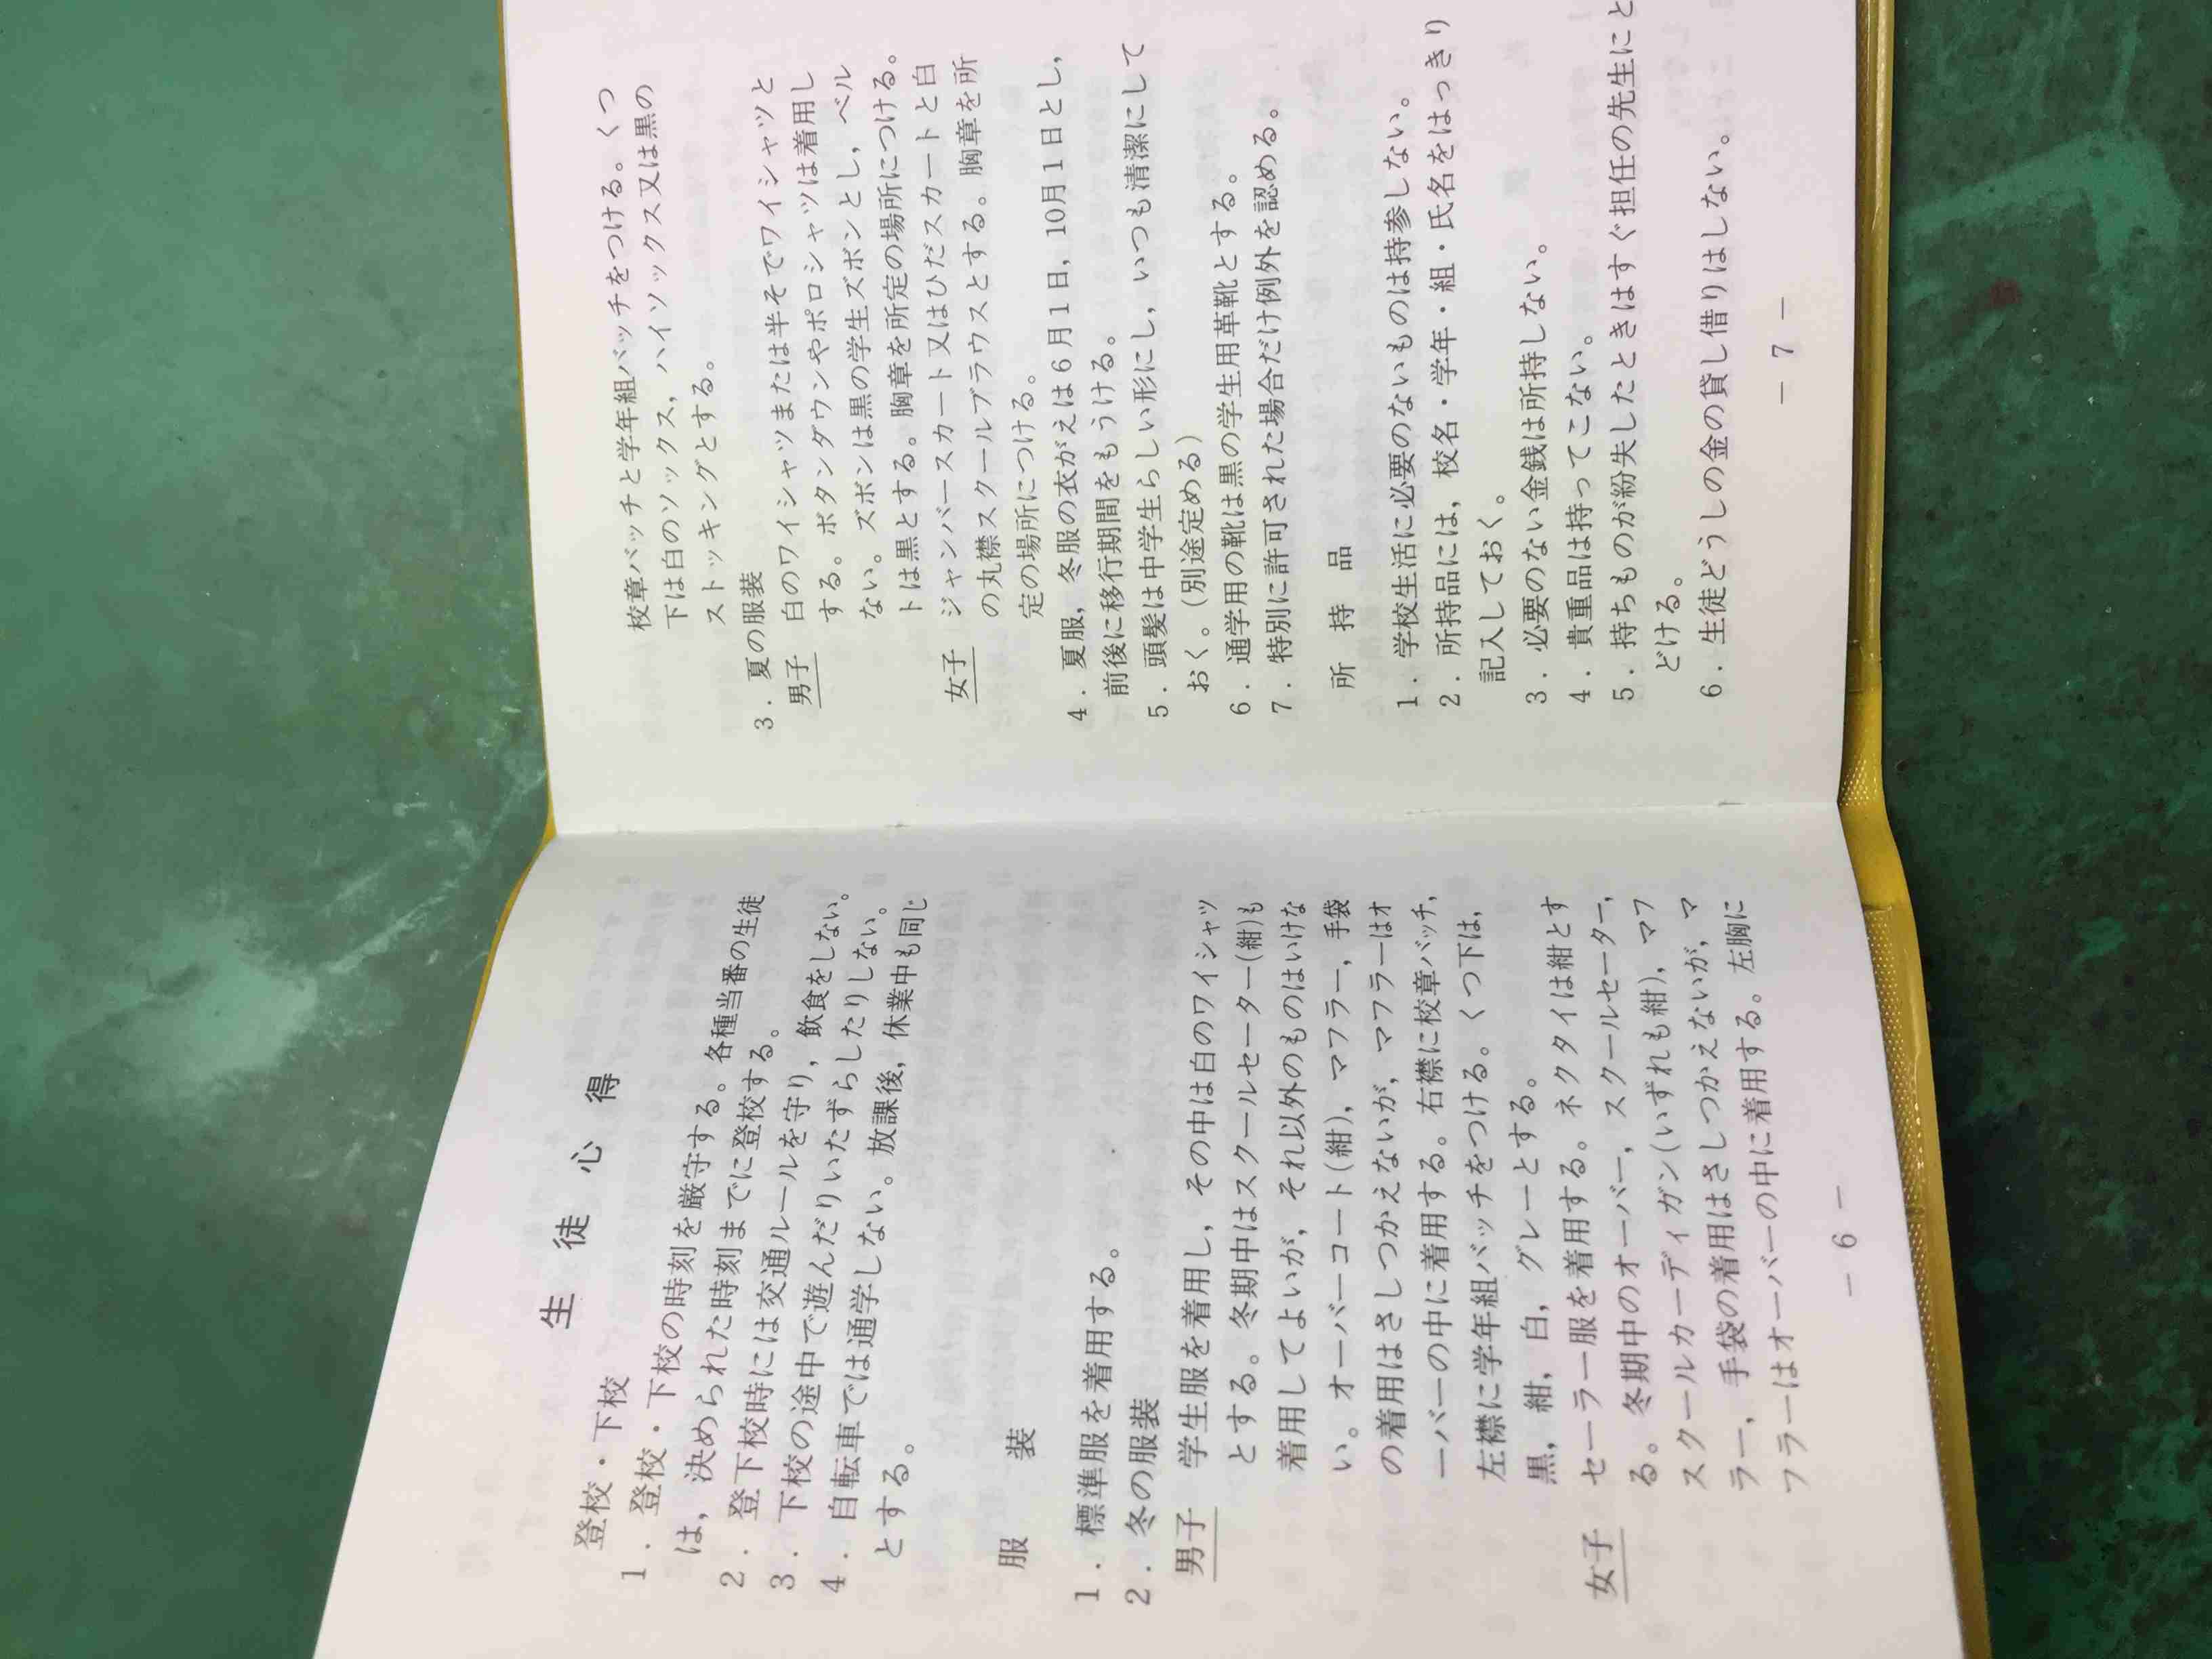 生徒心得
登校・下校
1．登校・下校の時刻を厳守する。各種当番の生徒
は，決められた時刻までに登校する。
2．登下校時には交通ルールを守り，飲食をしない。
3．下校の途中で遊んだりいたずらしたりしない。
4．自転車では通学しない。放課後，休業中も同じ
とする。
服装
1．標準服を着用する。
2．冬の服装
男子 学生服を着用し，その中は白のワイシャツ
とする。冬期中はスクールセーター(紺)も
着用してよいが，それ以外のものはいけな
い。オーバーコート(紺)，マフラー，手袋
の着用はさしつかえないが，マフラーはオ
ーバーの中に着用する。右襟に校章バッチ，
左襟に学年組バッチをつける。くつ下は，
黒，紺，白，グレーとする。
女子 セーラー服を着用する。ネクタイは紺とす
る。冬期中のオーバー，スクールセーター，
スクールカーディガン(いずれも紺)，マフ
ラー，手袋の着用はさしつかえないが，マ
フラーはオーバーの中に着用する。左胸に
― 6 ―
校章バッチと学年組バッチをつける。くつ
下は白のソックス，ハイソックス又は黒の
ストッキングとする。
3．夏の服装
男子 白のワイシャツまたは半そでワイシャツと
する。ボタンダウンやポロシャツは着用し
ない。ズボンは黒の学生ズボンとし，ベル
トは黒とする。胸章を所定の場所につける。
女子 ジャンバースカート又はひだスカートと白
の丸襟スクールブラウスとする。胸章を所
定の場所につける。
4．夏服，冬服の衣がえは6月1日，10月1日とし，
前後に移行期間をもうける。
5．頭髪は中学生らしい形にし，いつも清潔にして
おく。(別途定める)
6．通学用の靴は黒の学生用革靴とする。
7．特別に許可された場合だけ例外を認める。
所持品
1．学校生活に必要のないものは持参しない。
2．所持品には，校名・学年・組・氏名をはっきり
記入しておく。
3．必要のない金銭は所持しない。
4．貴重品は持ってこない。
5．持ちものが紛失したときはすぐ担任の先生にと
どける。
6．生徒どうしの金の貸し借りはしない。
― 7 ―